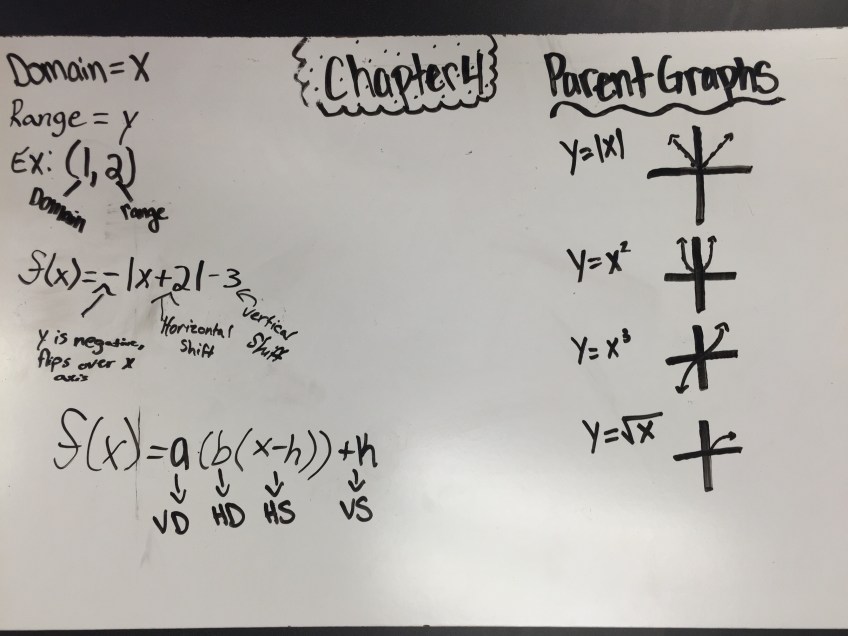 Chapter 4
Domain = X
Range = y
Ex: (1, 2)
Domain range
f(x) = -|x+2| - 3
y is negative,
flips over x
axis
Horizontal
Shift
Vertical
Shift
f(x) = a (b(x-h)) + k
VD HD HS VS
Parent Graphs
y=|x|
y=x²
y=x³
y=√x